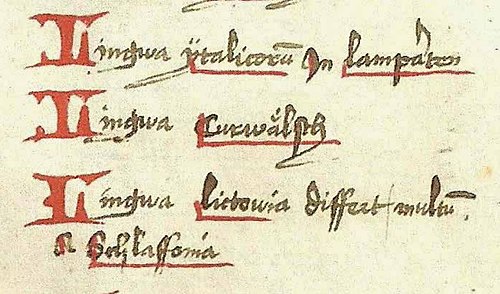 Lingwa ÿtalicorū In lamparten
Lingwa Curwälsch
Lingwa littowia differt multū
a Schlaffonia